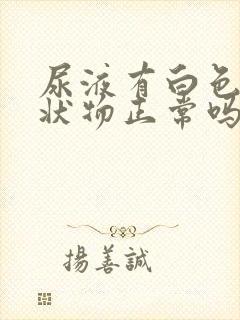 尿液有白色
状物正常吗
揚善誠